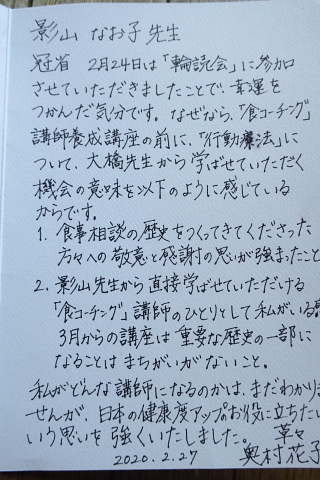 影山 なお子 先生
冠省 2月24日は「輪読会」に参加
させていただきましたことで、幸運を
つかんだ気分です。なぜなら、「食コーチング」
講師養成講座の前に、「行動療法」に
ついて、大橋先生から学ばせていただく
機会の意味を以下のように感じている
からです。
1. 食事相談の歴史をつくってきてくださった
方々への敬意と感謝の思いが強まったこと
2. 影山先生から直接学ばせていただける
「食コーチング」講師のひとりとして私がいる
3月からの講座は重要な歴史の一部に
なることはまちがいがないこと。
私がどんな講師になるのかは、まだわかりま
せんが、日本の健康度アップお役に立ちたい
いう思いを強くいたしました。 草々
2020.2.27 奥村花子